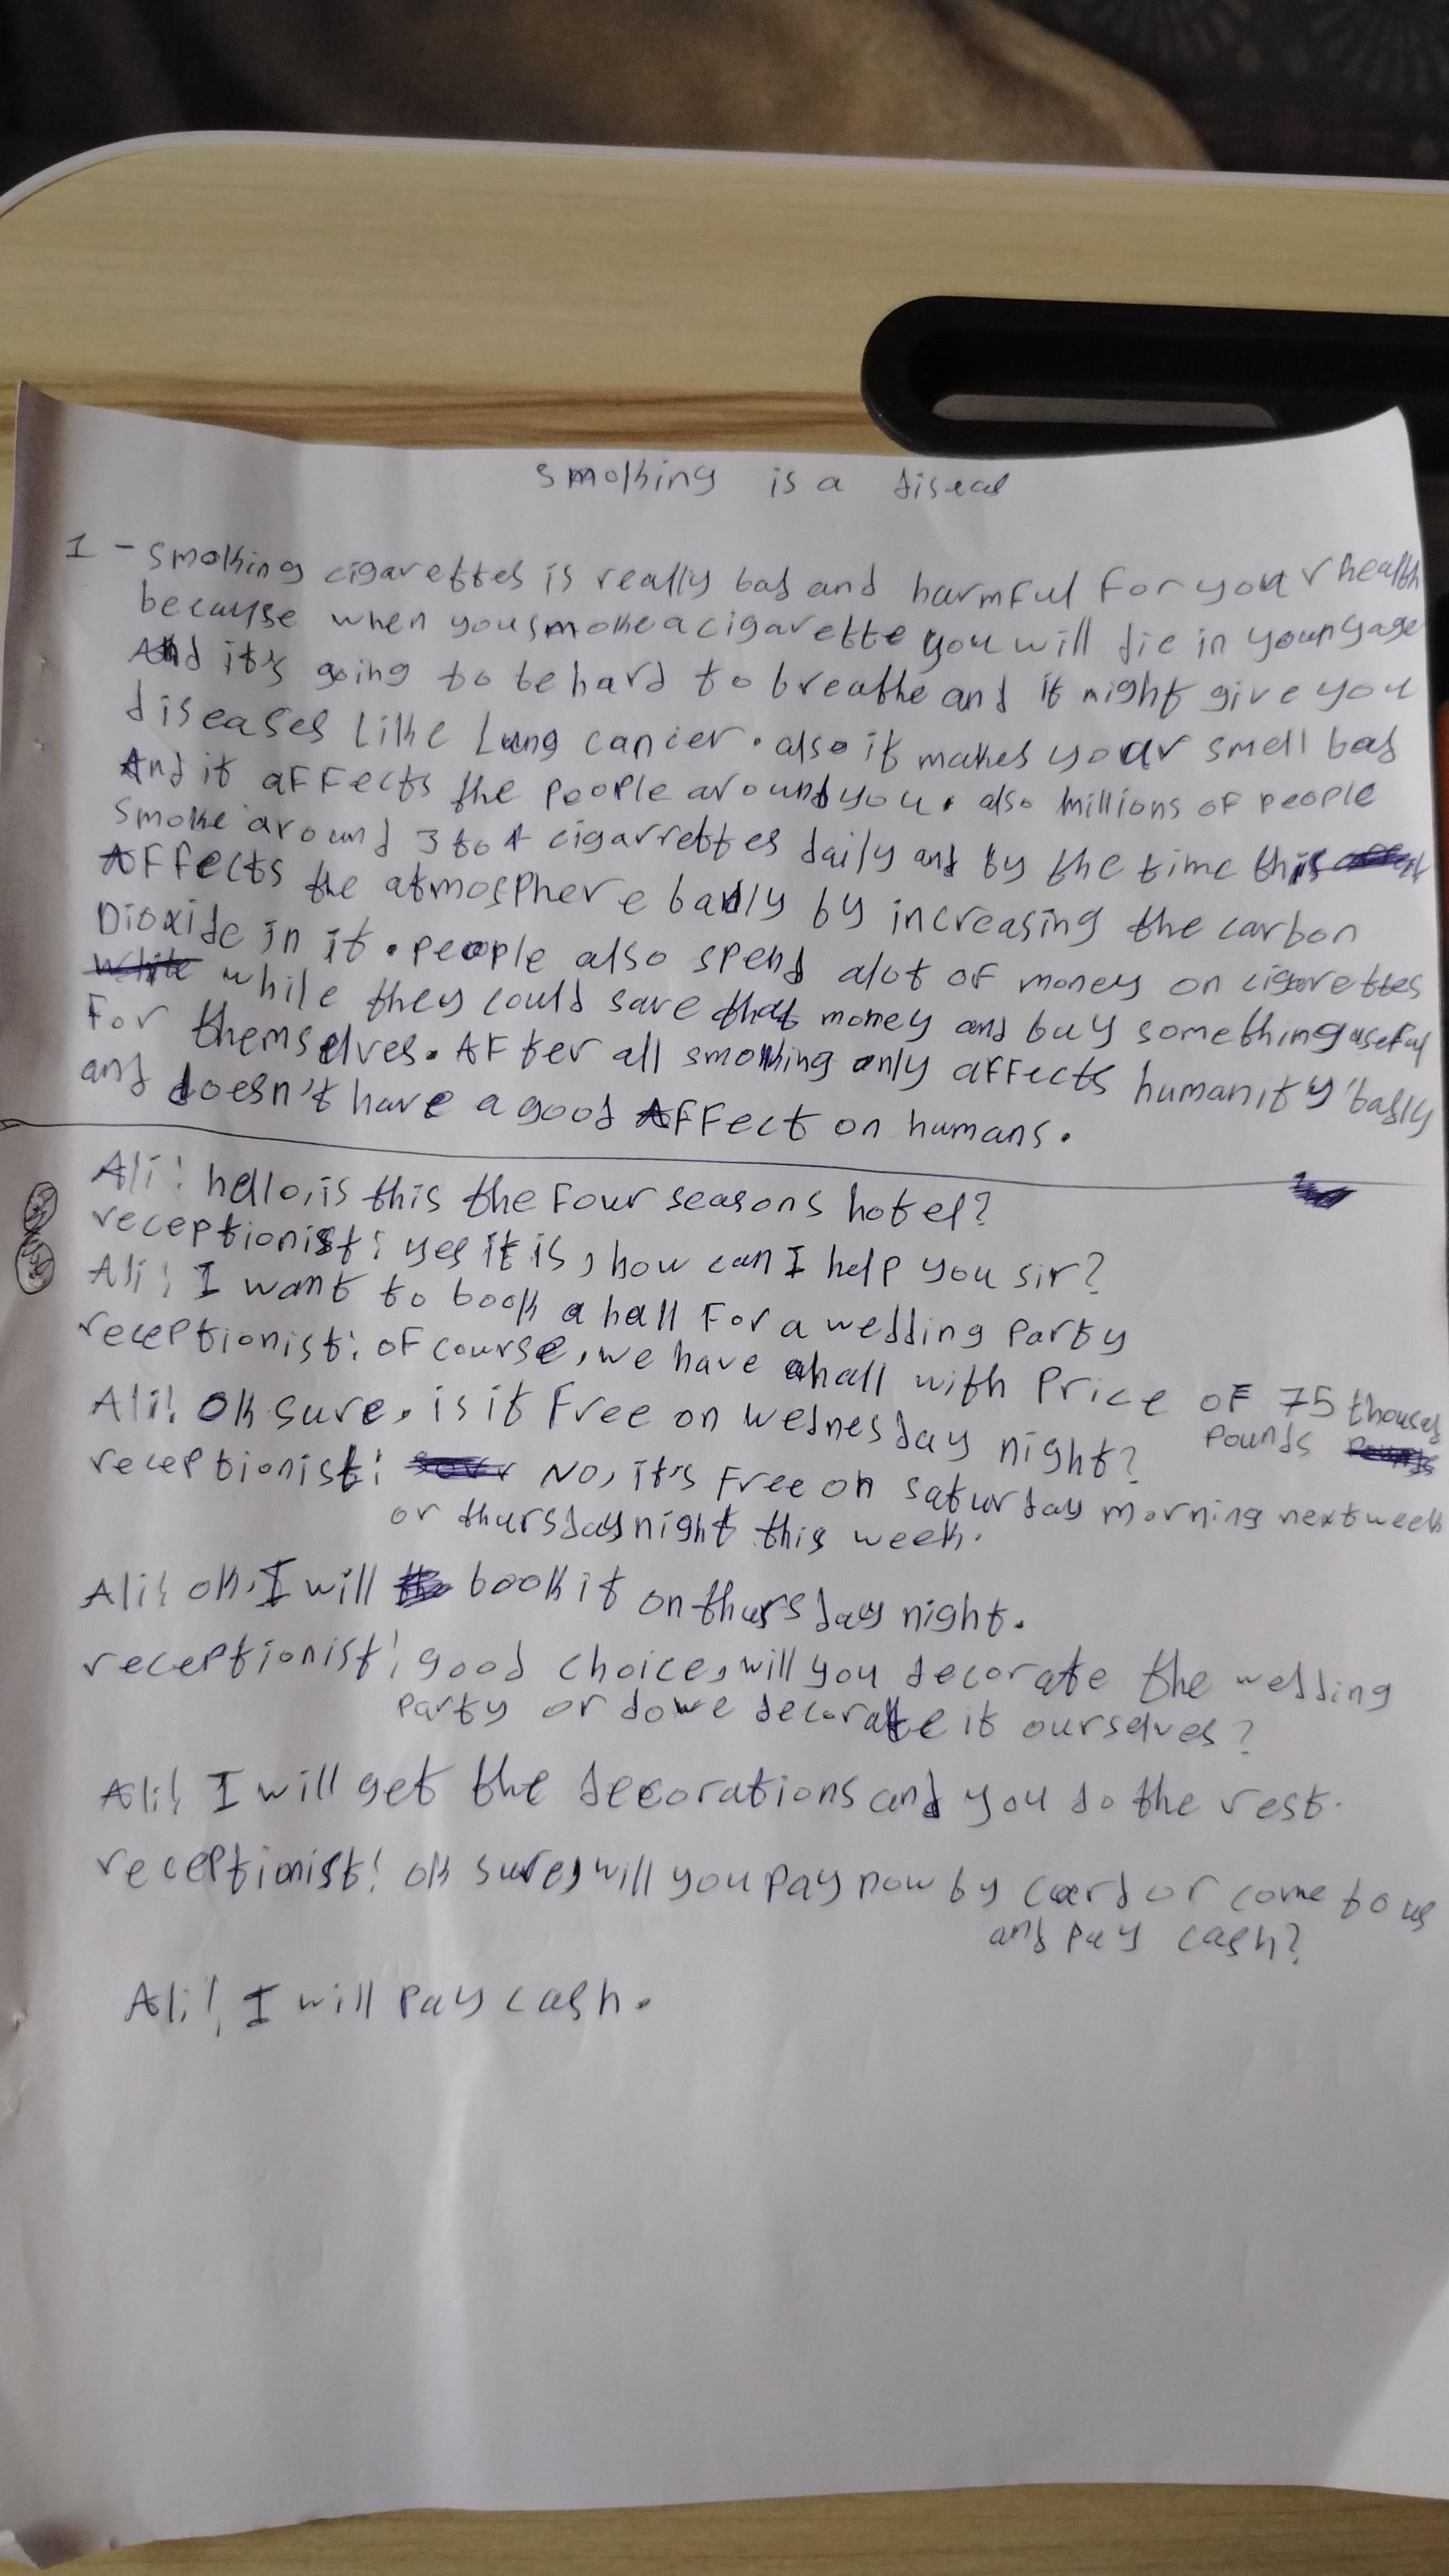 smoking is a diseas
1 - smoking cigarettes is really bad and harmful for your health
because when you smoke a cigarette you will die in young age
And it's going to be hard to breathe and it might give you
diseases Like Lung cancer. also it makes your smell bad
And it affects the people around you. also millions of people
smoke around 3 to 4 cigarrettes daily and by the time this
Affects the atmosphere badly by increasing the carbon
Dioxide in it. people also spend alot of money on cigarettes
while they could save that money and buy something useful
For themselves. After all smoking only affects humanity badly
and doesn't have a good Affect on humans.
Ali: hello, is this the four seasons hotel?
receptionist: yes it is, how can I help you sir?
Ali: I want to book a hall for a wedding party
receptionist: of course, we have a hall with Price of 75 thousand
pounds
Ali: ok sure, is it free on wednesday night?
receptionist: No, it's free on saturday morning next week
or thursday night this week.
Ali: ok, I will book it on thursday night.
receptionist: good choice, will you decorate the wedding
party or do we decorate it ourselves?
Ali: I will get the decorations and you do the rest.
receptionist: ok sure, will you pay now by card or come to us
and pay cash?
Ali: I will pay cash.